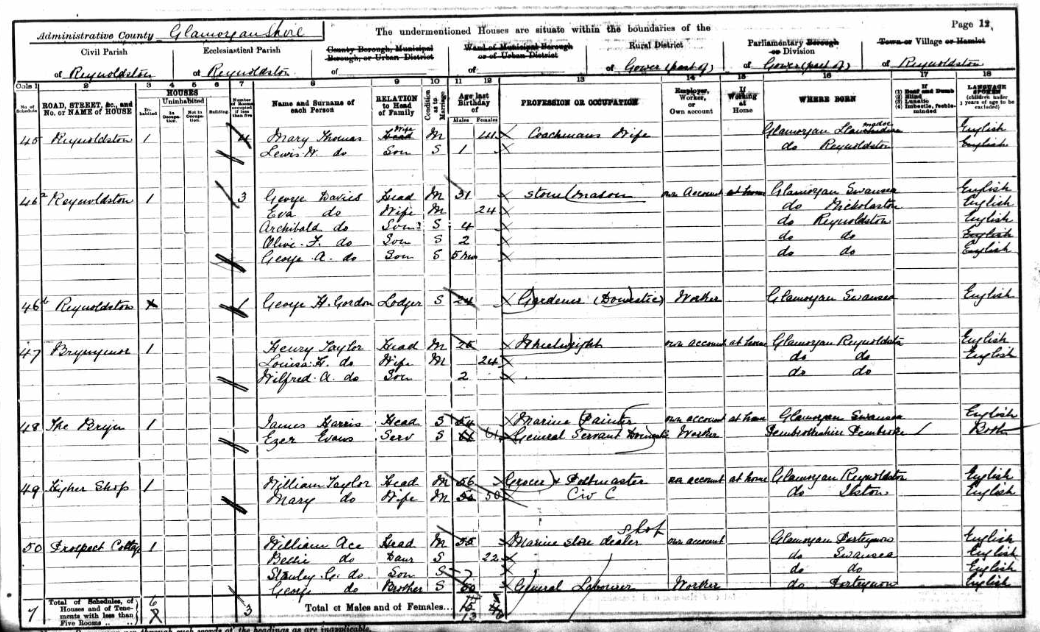 Administrative County Glamorgan Shire The undermentioned Houses are situate within the boundaries of the Page 12
Civil Parish Ecclesiastical Parish County Borough, Municipal Borough, or Urban District Ward of Municipal Borough or of Urban District Rural District Parliamentary Borough or Division Town or Village or Hamlet
of Reynoldston of Reynoldston of of of Gower (part of) of Gower (part of) of Reynoldston
Cols 1 2 3 4 5 6 7 8 9 10 11 12 13 14 15 16 17 18
No. of Schedule ROAD, STREET, &c., and No. or NAME of HOUSE HOUSES Inhabited Uninhabited In Occupation Not in Occupation Building Name and Surname of each Person RELATION to Head of Family Condition as to Marriage Age last Birthday of Males Females PROFESSION OR OCCUPATION Employer, Worker, or Own account If Working at Home WHERE BORN If (1) Deaf and Dumb (2) Blind (3) Lunatic (4) Imbecile, feeble-minded LANGUAGE SPOKEN (children under 3 years of age to be excluded)
45 Reynoldston 1 4 Mary Thomas Head Wife M 41 Coachmans Wife Glamorgan English
Lewis do Son S 1 do Reynoldston English
46a Reynoldston 1 3 George Davies Head M 31 Stone Mason own account at home Glamorgan Swansea English
Eva do Wife M 24 do Nicholaston English
Archibald do Son S 4 do Reynoldston English
Olive F. do Son S 2 do do English
George A. do Son S 5 mo do do English
46b Reynoldston 1 George H. Gordon Lodger S 24 Gardener (Domestic) Worker Glamorgan Swansea English
47 Brynymor 1 Henry Taylor Head M 25 Wheelwright own account at home Glamorgan Reynoldston English
Louisa H. do Wife M 24 do do English
Wilfred A. do Son 2 do do
48 The Bryn 1 James Harris Head S 54 Marine Painter own account at home Glamorgan Swansea English
Evans Serv S General Servant Domestic Worker Pembrokeshire Pembroke Both
49 Higher Shop 1 William Taylor Head M 56 Grocer & Postmaster own account at home Glamorgan Reynoldston English
Mary do Wife M 50 Civ C do Ilston English
50 Prospect Cottage 1 William Ace Head M 55 Marine store dealer Shop own account Glamorgan Porteynon English
do Daur S 22 do Swansea English
Stanley G. do Son S 7 do do English
George do Brother S General Labourer Worker do Porteynon English
7 Total of Schedules, of Houses and of Tenements with less than Five Rooms 6 3 Total of Males and of Females